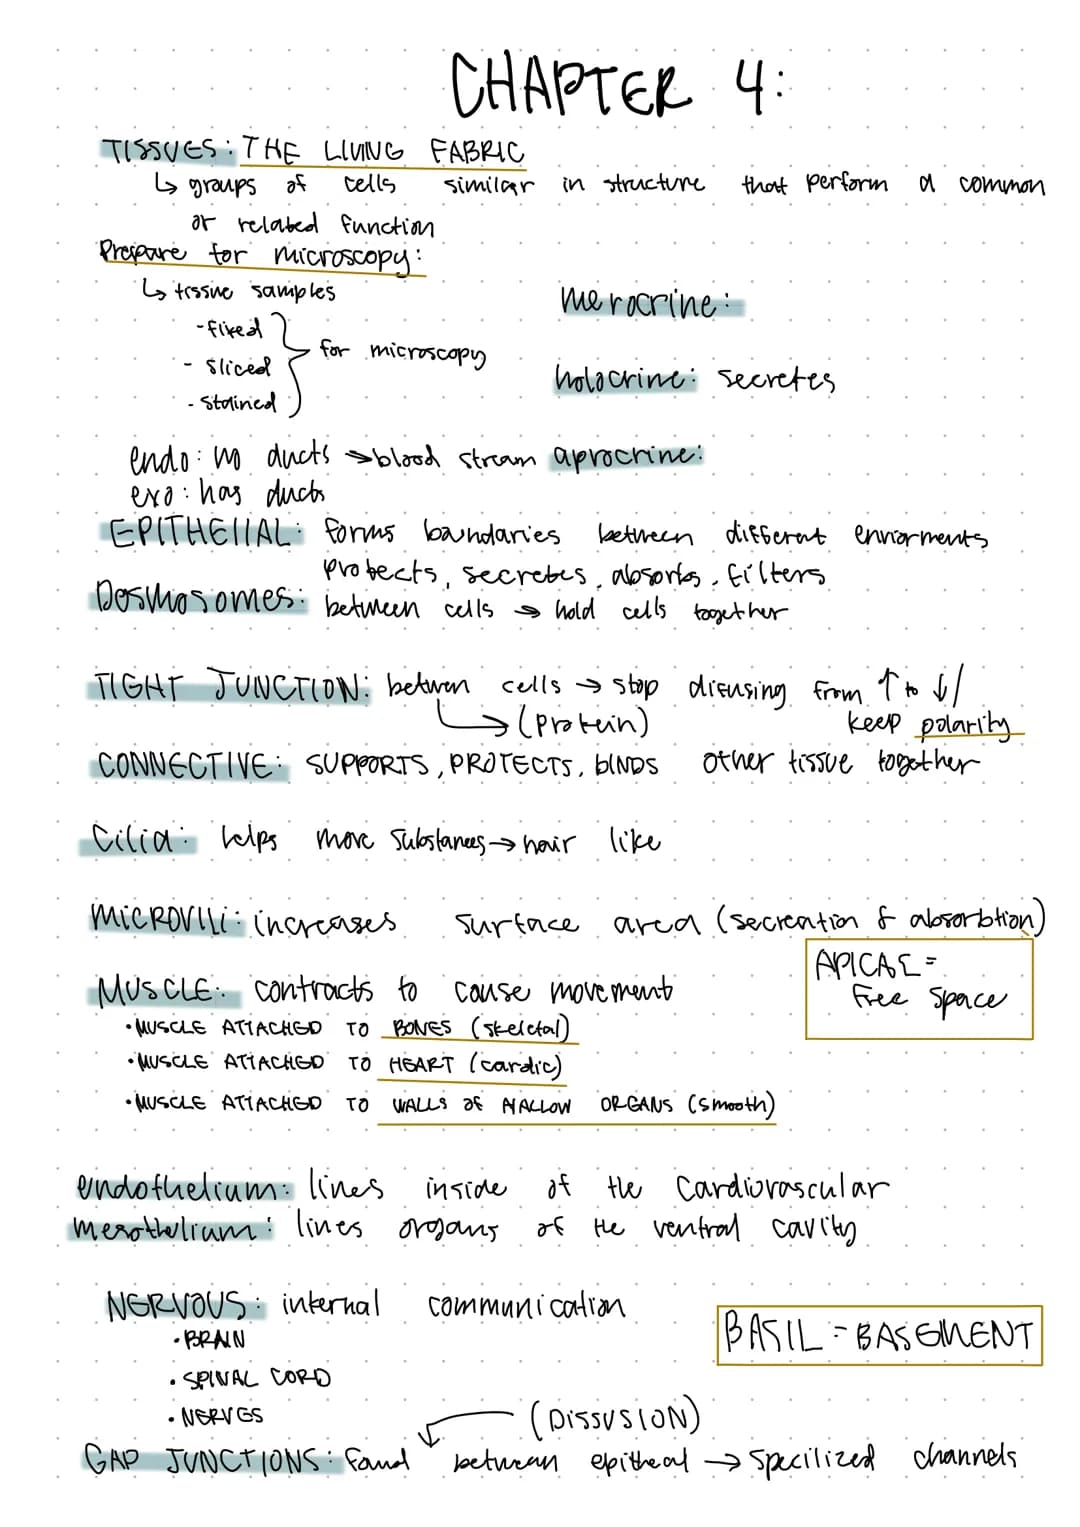 CHAPTER 4:
TISSUES: THE LIVING FABRIC
↳ groups of cells similar in structure that perform a common
or related function
Prepare for microscopy:
↳ tissue samples
- fixed
- sliced
- stained
for microscopy
merocrine:
holocrine: secretes
endo: no ducts → blood stream
exo: has ducts
aprocrine:
EPITHEIIAL: forms boundaries between different enviorments
protects, secretes, absorbs, filters
Desmosomes: between cells → hold cells together
TIGHT JUNCTION: between cells → stop difusing from ↑ to ↓/
↳ (protein) keep polarity
CONNECTIVE: SUPPORTS, PROTECTS, BINDS other tissue together
Cilia: helps move substances → hair like
MICROVILLI: increases surface area (secreation & absorbtion)
APICAL =
Free space
MUSCLE: contracts to cause movement
• MUSCLE ATTACHED TO BONES (skeletal)
• MUSCLE ATTACHED TO HEART (cardic)
• MUSCLE ATTACHED TO WALLS OF HALLOW ORGANS (smooth)
endothelium: lines inside of the cardiovascular
mesothelium: lines organs of the ventral cavity
NERVOUS: internal communication
• BRAIN
• SPINAL CORD
• NERVES
BASIL = BASEMENT
(DISSUSION)
GAP JUNCTIONS: Found between epitheal → specilized channels